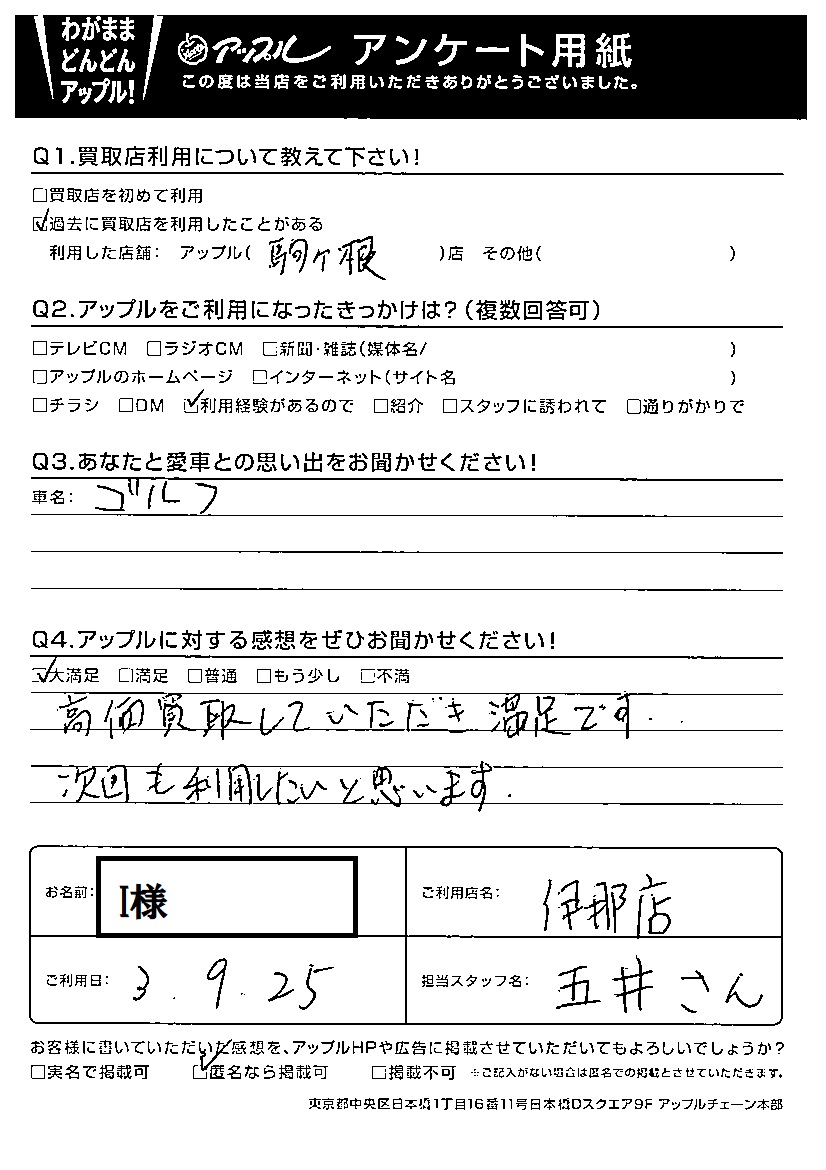 わがまま
どんどん
アップル!
アップル アンケート用紙
この度は当店をご利用いただきありがとうございました。
Q1.買取店利用について教えて下さい!
□買取店を初めて利用
☑過去に買取店を利用したことがある
利用した店舗: アップル( 駒ヶ根 )店 その他( )
Q2.アップルをご利用になったきっかけは?(複数回答可)
□テレビCM □ラジオCM □新聞・雑誌(媒体名/ )
□アップルのホームページ □インターネット(サイト名 )
□チラシ □DM ☑利用経験があるので □紹介 □スタッフに誘われて □通りがかりで
Q3.あなたと愛車との思い出をお聞かせください!
車名: ゴルフ
Q4.アップルに対する感想をぜひお聞かせください!
☑大満足 □満足 □普通 □もう少し □不満
高価買取していただき満足です.
次回も利用したいと思います.
お名前: I様 ご利用店名: 伊那店
ご利用日: 3.9.25 担当スタッフ名: 五井さん
お客様に書いていただいた感想を、アップルHPや広告に掲載させていただいてもよろしいでしょうか?
□実名で掲載可 ☑匿名なら掲載可 □掲載不可 ※ご記入がない場合は匿名での掲載とさせていただきます。
東京都中央区日本橋1丁目16番11号日本橋Dスクエア9F アップルチェーン本部